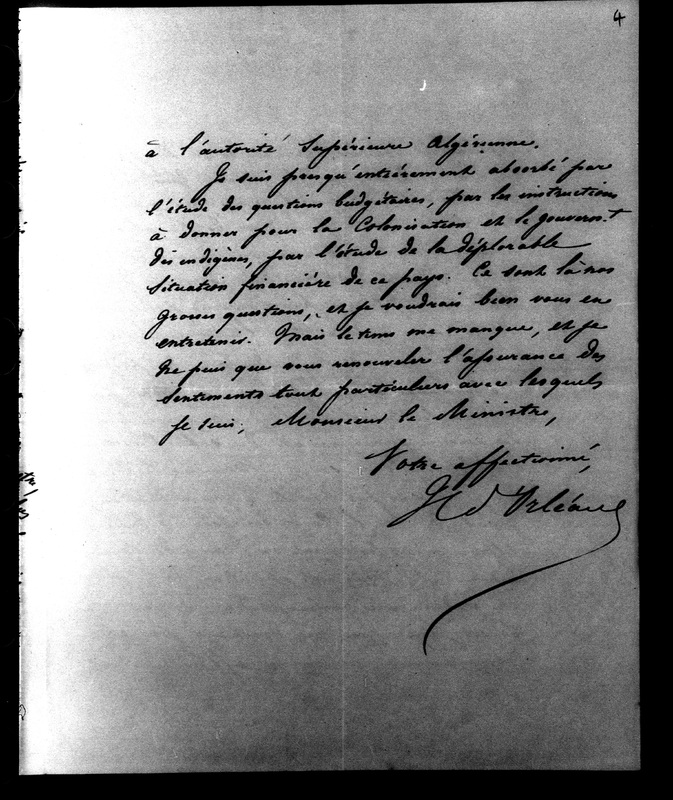 4
à l'autorité Supérieure Algérienne.
Je suis presqu'entièrement absorbé par
l'étude des questions budgétaires, par les instructions
à donner pour la Colonisation et le gouvernt
des indigènes, par l'étude de la déplorable
situation financière de ce pays. Ce sont là nos
grosses questions, et je voudrais bien vous en
entretenir. Mais le tems me manque, et je
ne puis que vous renouveler l'assurance des
sentiments tout particuliers avec lesquels
je suis, Monsieur le Ministre,
Votre affectionné,
H d'Orléans